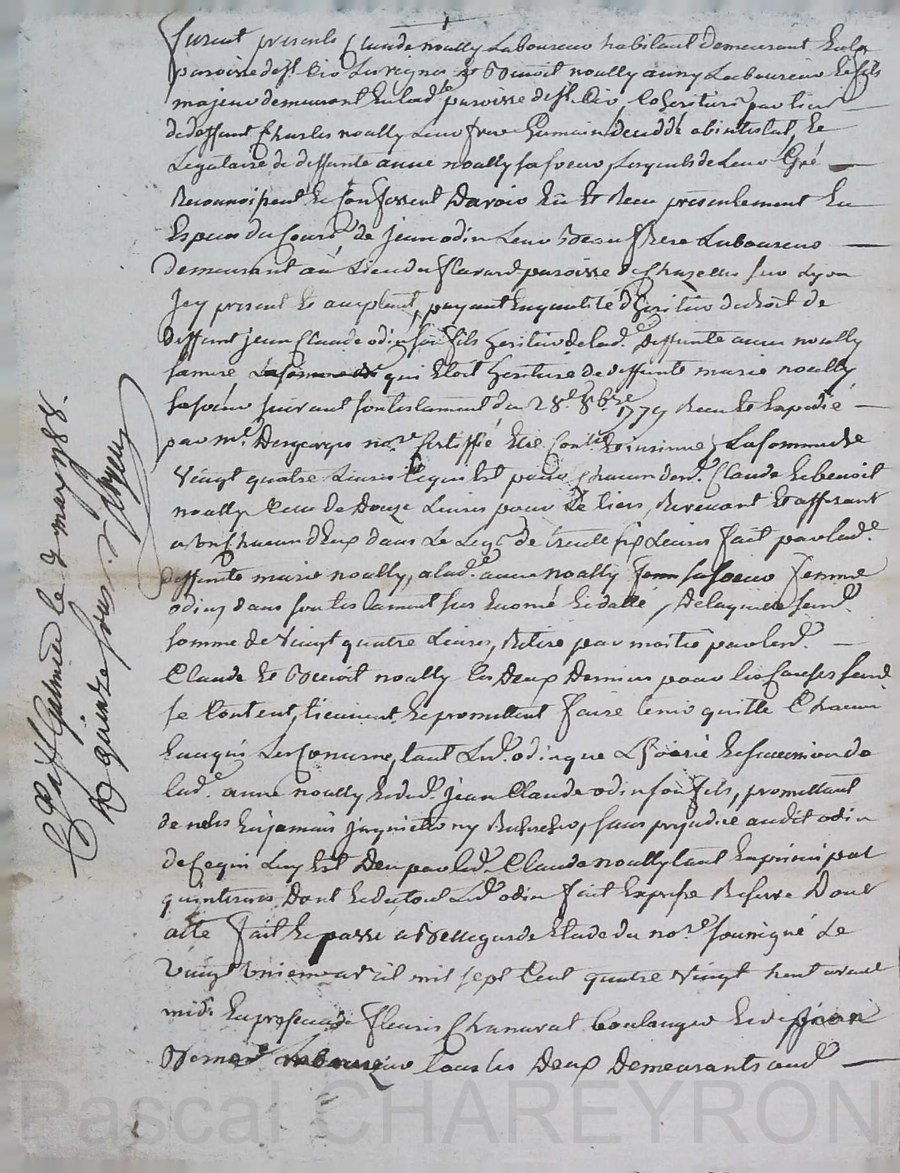 furent presents Claude noally Laboureur habitant demeurant En la
paroisse de st Cir Les vignes et Benoit noally aussy Laboureur
majeur demeurant En lad.e paroisse de st Cir Coheritiers pour un tiers
de deffunt Charles noally Leur frere Germain decedé abintestat, et
Legataire de deffunte anne noally sa soeur, Lesquels de Leur Gré
Reconnoissent et Confessent Davoir Eü et Recu présentement En
Especes du Cours, de jean odin Leur Beau frere Laboureur
demeurant au Lieu du flavard paroisse de Chazelles sur Lyon
Icy present et acceptant, payant En qualité d'heritier de droit de
deffunt jean Claude odin son fils heritier de lad.e deffunte anne noally
sa mere qui Etoit heritiere de deffunte marie noally
sa soeur suivant son testament du 28.e 8bre 1779 Recu et Expedié
par m.e notre. Certiffié Etre Con.lé La somme de
vingt quatre Livres Ce qui Est pour Chacun desd. Claude et benoit
noally Celle de Douze Livres pour Le tiers, Revenant et afferant
a un Chacun d'Eux dans Le Legs de trente six Livres fait par lad.e
deffunte marie noally, a lad.e anne noally sa soeur femme
odin, dans son testament sus Enoncé Et datté, De laquelle susd.e
somme de vingt quatre Livres, Retiré par moitié par lesd.
Claude et Benoit noally
se Contentent, tiennent et promettent faire tenir quitte Chacun
En ce qui Les Concerne, tant Led. odin que L'hoirie et succession de
lad. anne noally Et dud. jean Claude odin son fils, promettant
de n'En jamais Inquietter ny Rechercher, sans prejudice audit odin
de Ce qui Luy Est Deu par led. Claude noally tant En principal
qu'interets, Dont Et du tout Led. odin fait Expresse Reserve Dont
acte fait Et passé a Bellegarde Etude du no.re soussigné Le
vingt unieme avril mil sept Cent quatre vingt huit avant
midi En presence de fleuris Chanavat boulanger Et de
Laboureur tous les Deux Demeurants aud.
Cllé a st Galmier le d. may 1788.
R. quinze sous.
Pascal CHAREYRON